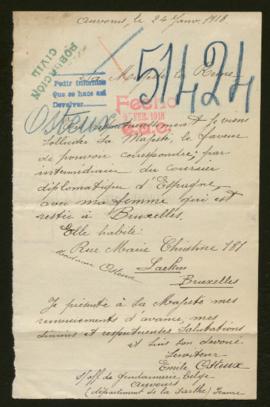 Auvours, le 24 Janv. 1918.
POBLACION
CIVIL
51424
Pedir informes
que se hace est
Devolver
Sa Majesté la Reine
Fecho
FEB. 1918
Osteux
solliciter Sa Majesté, la faveur
de pouvoir correspondre, par
intermédiaire du courrier
diplomatique d'Espagne,
avec ma femme qui est
restée à Bruxelles.
Elle habite:
Rue Marie Christine 181
Madame Osteux
Laeken
Bruxelles
Je présente à Sa Majesté mes
remerciements d'avance, mes
sincères et respectueuses salutations
et suis son dévoué
Serviteur
Emile Osteux
s/off de gendarmerie belge
Auvours
(département de la Sarthe) France